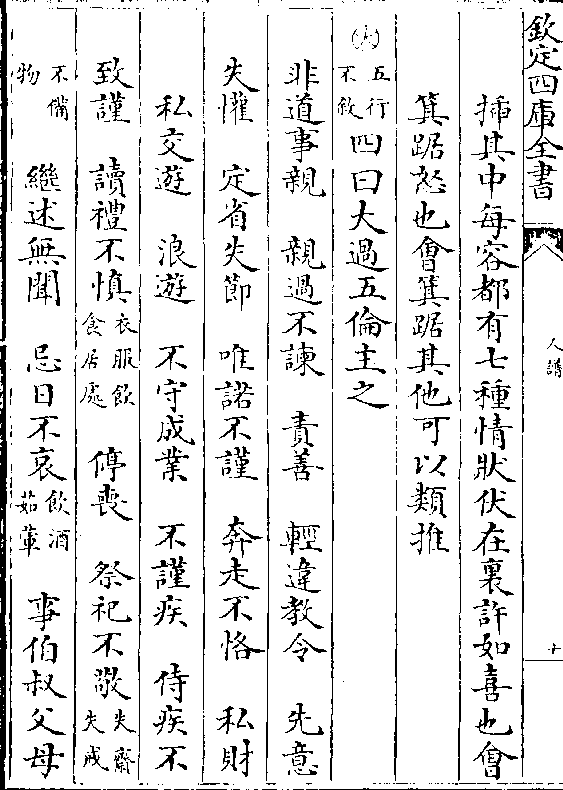 欽定四庫全書
人譜
十
揷其中每容都有七種情狀伏在裏許如喜也㑹
箕踞怒也㑹箕踞其他可以類推
五行不敘四曰大過五倫主之
非道事親　親過不諫　責善　輕違教令　先意
失懽　定省失節　唯諾不謹　奔走不恪　私財
私交遊　浪遊　不守成業　不謹疾　侍疾不
致謹　讀禮不慎衣服飲食居處　停喪　祭祀不敬失齋失戒
不備物　繼述無聞　忌日不哀飲酒茹葷　事伯叔父母